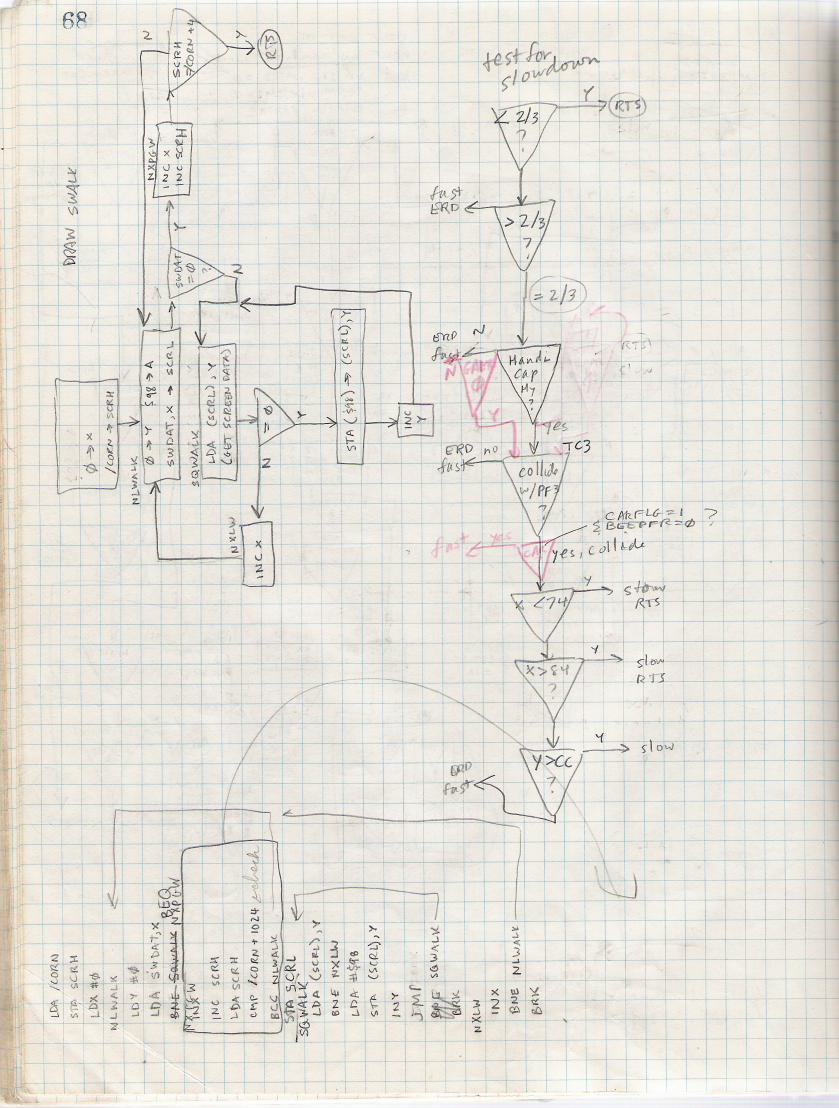 68
DRAW SWALK
Ø → X
/CORN → SCRH
NLWALK
Ø → Y $98 → A
SWDAT,X → SCRL
SWDAT
= Ø
?
Y
N
NXPGW
INC X
INC SCRH
SCRH
=/CORN+4
Y
RTS
SQWALK
LDA (SCRL),Y
(GET SCREEN DATA)
= Ø
Y
N
STA ($98) → (SCRL),Y
INC
Y
NXLW
INC X
test for
slowdown
< 2/3
?
Y
RTS
> 2/3
?
fast
ERD
= 2/3
Handi
Cap
My
?
N
ERD
fast
N
Ø
Y
yes
RTS
slow
TC3
Collide
W/PF3
?
no
ERD
fast
CARFLG=1
& BEEPFR=Ø ?
CAR
yes
fast
yes, collide
X <74
Y
slow
RTS
X>84
?
Y
slow
RTS
Y>CC
?
Y
slow
ERD
fast
LDA /CORN
STA SCRH
LDX #Ø
NLWALK
LDY #Ø
LDA SWDAT,X
BEQ
BNE SQWALK NXPGW
NXPGW
INX
INC SCRH
LDA SCRH
CMP /CORN+1024 check
BCC NLWALK
STA SCRL
SQWALK
LDA (SCRL),Y
BNE NXLW
LDA #$98
STA (SCRL),Y
INY
JMP
BNE SQWALK
BRK
NXLW
INX
BNE NLWALK
BRK